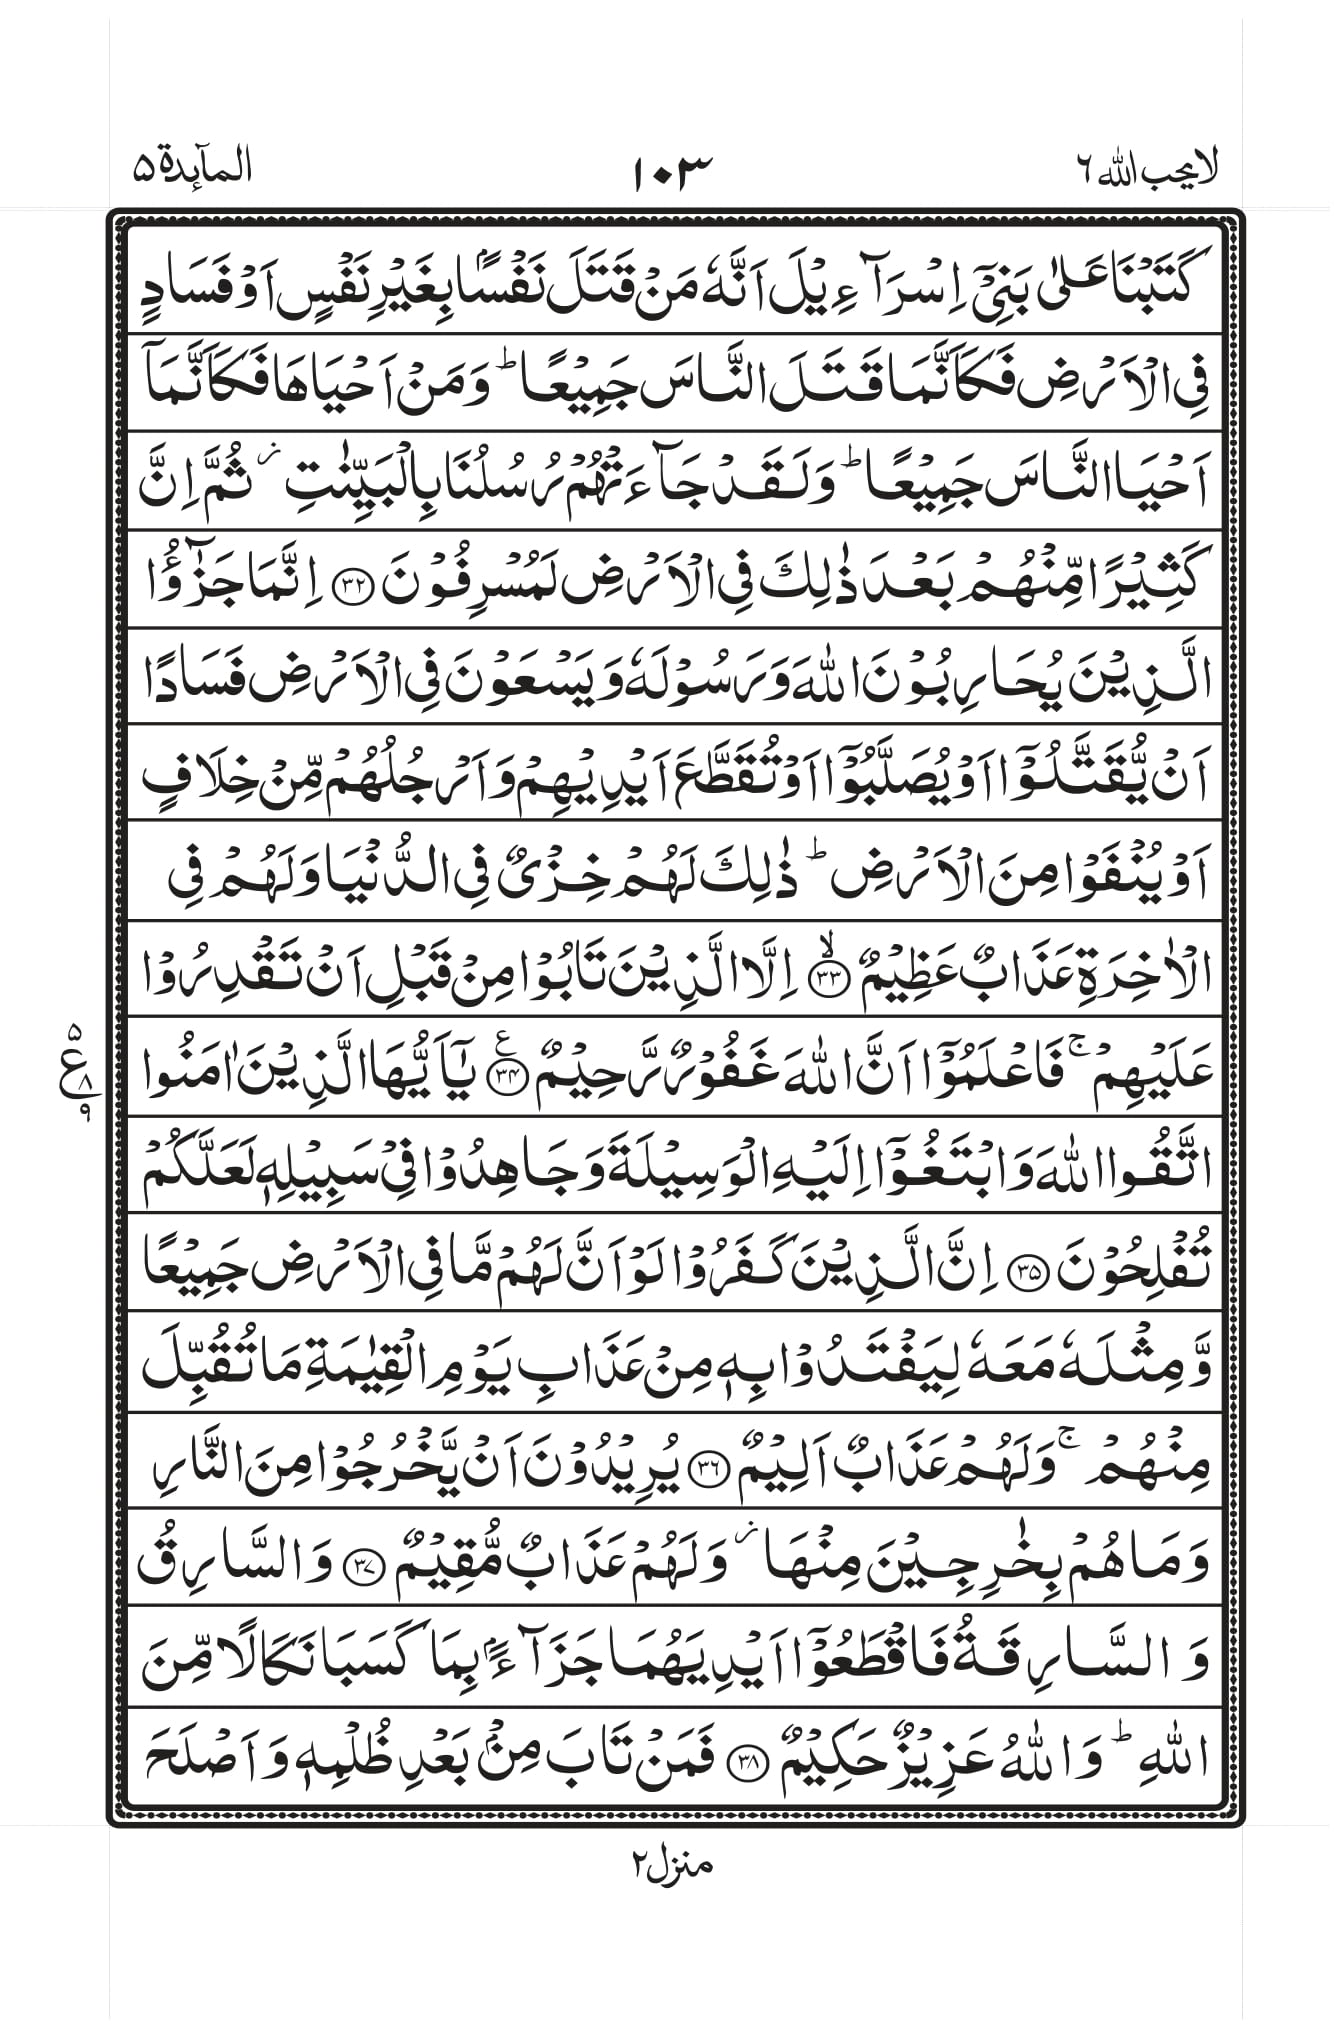 لا یحب الله ٦
١٠٣
المآىِٕدة ۵
كَتَبْنَا عَلٰى بَنِیْۤ اِسْرَآءِیْلَ اَنَّهٗ مَنْ قَتَلَ نَفْسًۢا بِغَیْرِ نَفْسٍ اَوْ فَسَادٍ
فِی الْاَرْضِ فَكَاَنَّمَا قَتَلَ النَّاسَ جَمِیْعًا ؕ وَ مَنْ اَحْیَاهَا فَكَاَنَّمَاۤ
اَحْیَا النَّاسَ جَمِیْعًا ؕ وَ لَقَدْ جَآءَتْهُمْ رُسُلُنَا بِالْبَیِّنٰتِ ؗ ثُمَّ اِنَّ
كَثِیْرًا مِّنْهُمْ بَعْدَ ذٰلِكَ فِی الْاَرْضِ لَمُسْرِفُوْنَ ﴿۳۲﴾ اِنَّمَا جَزٰٓؤُا
الَّذِیْنَ یُحَارِبُوْنَ اللّٰهَ وَ رَسُوْلَهٗ وَ یَسْعَوْنَ فِی الْاَرْضِ فَسَادًا
اَنْ یُّقَتَّلُوْۤا اَوْ یُصَلَّبُوْۤا اَوْ تُقَطَّعَ اَیْدِیْهِمْ وَ اَرْجُلُهُمْ مِّنْ خِلَافٍ
اَوْ یُنْفَوْا مِنَ الْاَرْضِ ؕ ذٰلِكَ لَهُمْ خِزْیٌ فِی الدُّنْیَا وَ لَهُمْ فِی
الْاٰخِرَةِ عَذَابٌ عَظِیْمٌ ۙ﴿۳۳﴾ اِلَّا الَّذِیْنَ تَابُوْا مِنْ قَبْلِ اَنْ تَقْدِرُوْا
عَلَیْهِمْ ۚ فَاعْلَمُوْۤا اَنَّ اللّٰهَ غَفُوْرٌ رَّحِیْمٌ ﴿۳۴﴾ یٰۤاَیُّهَا الَّذِیْنَ اٰمَنُوا
۵
ع
۸
۹
اتَّقُوا اللّٰهَ وَ ابْتَغُوْۤا اِلَیْهِ الْوَسِیْلَةَ وَ جَاهِدُوْا فِیْ سَبِیْلِهٖ لَعَلَّكُمْ
تُفْلِحُوْنَ ﴿۳۵﴾ اِنَّ الَّذِیْنَ كَفَرُوْا لَوْ اَنَّ لَهُمْ مَّا فِی الْاَرْضِ جَمِیْعًا
وَّ مِثْلَهٗ مَعَهٗ لِیَفْتَدُوْا بِهٖ مِنْ عَذَابِ یَوْمِ الْقِیٰمَةِ مَا تُقُبِّلَ
مِنْهُمْ ۚ وَ لَهُمْ عَذَابٌ اَلِیْمٌ ﴿۳٦﴾ یُرِیْدُوْنَ اَنْ یَّخْرُجُوْا مِنَ النَّارِ
وَ مَا هُمْ بِخٰرِجِیْنَ مِنْهَا ؗ وَ لَهُمْ عَذَابٌ مُّقِیْمٌ ﴿۳۷﴾ وَ السَّارِقُ
وَ السَّارِقَةُ فَاقْطَعُوْۤا اَیْدِیَهُمَا جَزَآءًۢ بِمَا كَسَبَا نَكَالًا مِّنَ
اللّٰهِ ؕ وَ اللّٰهُ عَزِیْزٌ حَكِیْمٌ ﴿۳۸﴾ فَمَنْ تَابَ مِنْۢ بَعْدِ ظُلْمِهٖ وَ اَصْلَحَ
منزل ۲